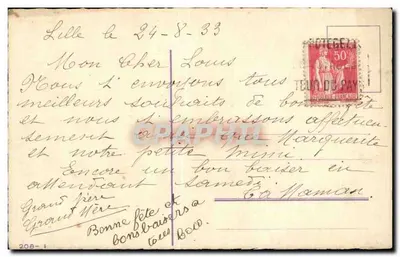 Lille le 24-8-33
Mon Cher Louis
Nous t'envoyons tous nos
meilleurs souhaits de bonne fête
et nous t'embrassons affectueu
sement ainsi que Marguerite
et notre petite Mimi
Encore un bon baiser en
attendant Samedi
Ta Maman
Grand Père
Grand Mère
Bonne fête et
bons baisers a
tous
50
208-1